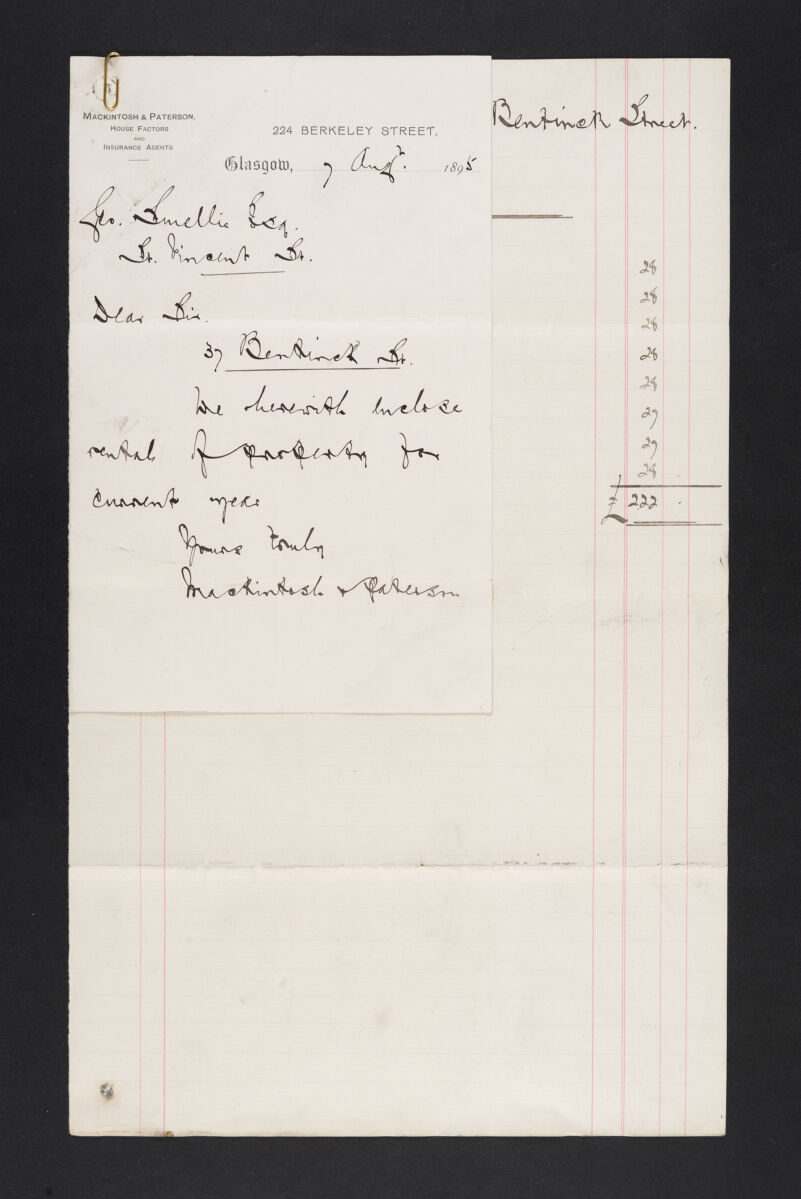 MACKINTOSH & PATERSON,
HOUSE FACTORS
AND
INSURANCE AGENTS
224 BERKELEY STREET,
Glasgow, 7 Augt. 1895
Geo. Smellie Esq.
St. Vincent St.
Dear Sir.
37 Bentinck St.
We herewith enclose
rental of property for
current year
Yours truly
Mackintosh & Paterson
Bentinck Street.
28
28
28
28
28
27
27
28
£ 222